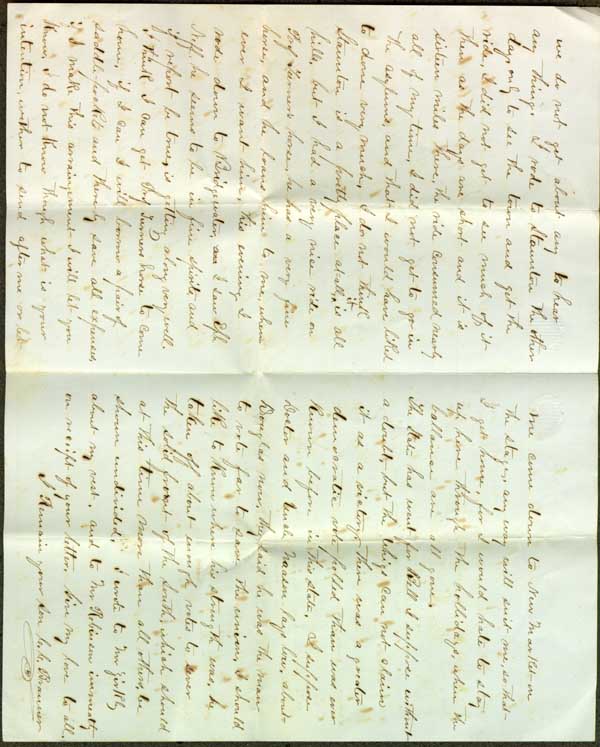 we do not get about any to hear
any thing. I rode to Staunton the other
day, only to see the town and get the
ride, I did not get to see much of it
there as the days are short and it is
sixteen miles from here, the ride consumed nearly
all of my time, I did not get to go in
the asylums, and that I would have liked
to done very much, I do not think
Staunton is a pretty place atall, it is all
hills, but I had a very nice ride on
Prof Turners horse, he has a very fine
horse, and he loans him to me, when
ever I want him, this evening I
rode down to Bridgewater and I saw
Neff, he seems to be in fine spirits and
if report be true, is getting along very well.
I think I can get Prof Turners horse to come
home, if I can I will borrow a pair of
saddle pockets and thereby save all expenses,
if I make this arrangement I will let you
know, I do not know though what is your
intention, wither to send after me or let
me come down to New Market in
the stage, any way will suit me so that
I get home, for I would hate to stay
up here through the holidays, when the
ballance are all gone.
The State has went for Bell I suppose without
a doubt, but the Whigs can not claim
it as a victory, there was a greater
democratic vote polled than was ever
known before in the state, I suppose
Doctor and Uncle Mason lays low about
Douglas now, they said he was the man
to vote for to save the union, I should
like to know where his strength was, he
taken off about enough votes to
the solid front of the South, which should
at this time more than all others, be
shown undivided. I wrote to Mr
about my vest, and to Mr Robinson immediately
on receipt of your letter. Give my love to all,
I remain your son